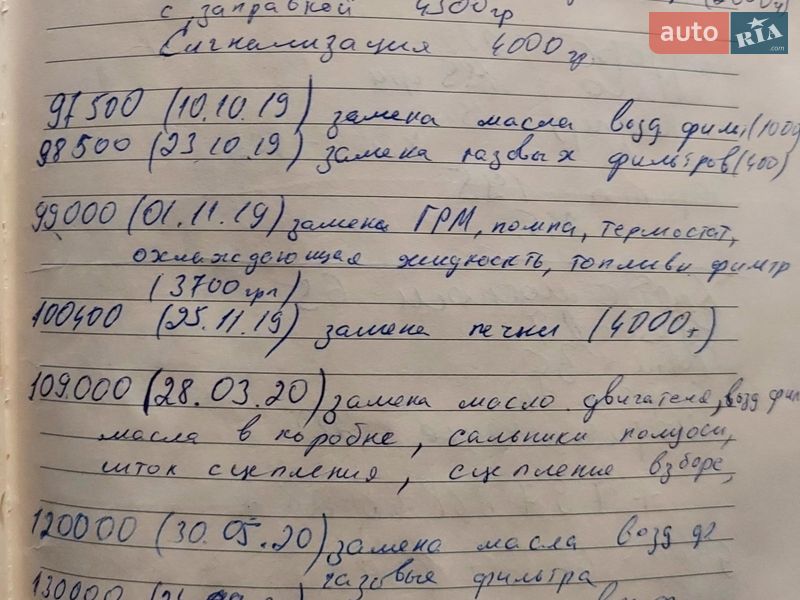 с заправкой 4500гр
Сигнализация 4000гр
auto RIA.com
97500 (10.10.19) замена масла возд фил
98500 (23.10.19) замена газовых фильтров (400)
99000 (01.11.19) замена ГРМ, помпа, термостат,
охлаждающая жидкость, топливн фильтр
(3700грн)
100400 (25.11.19) замена печки (4000
109.000 (28.03.20) замена масло двигателя, возд фил
масла в коробке, сальники полуоси,
шток сцепления, сцепление в зборе,
120000 (30.05.20) замена масла возд
газовые фильтра
130000